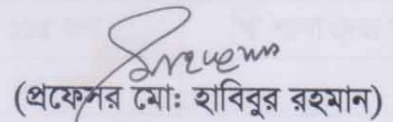 (প্রফেসর মোঃ হাবিবুর রহমান)